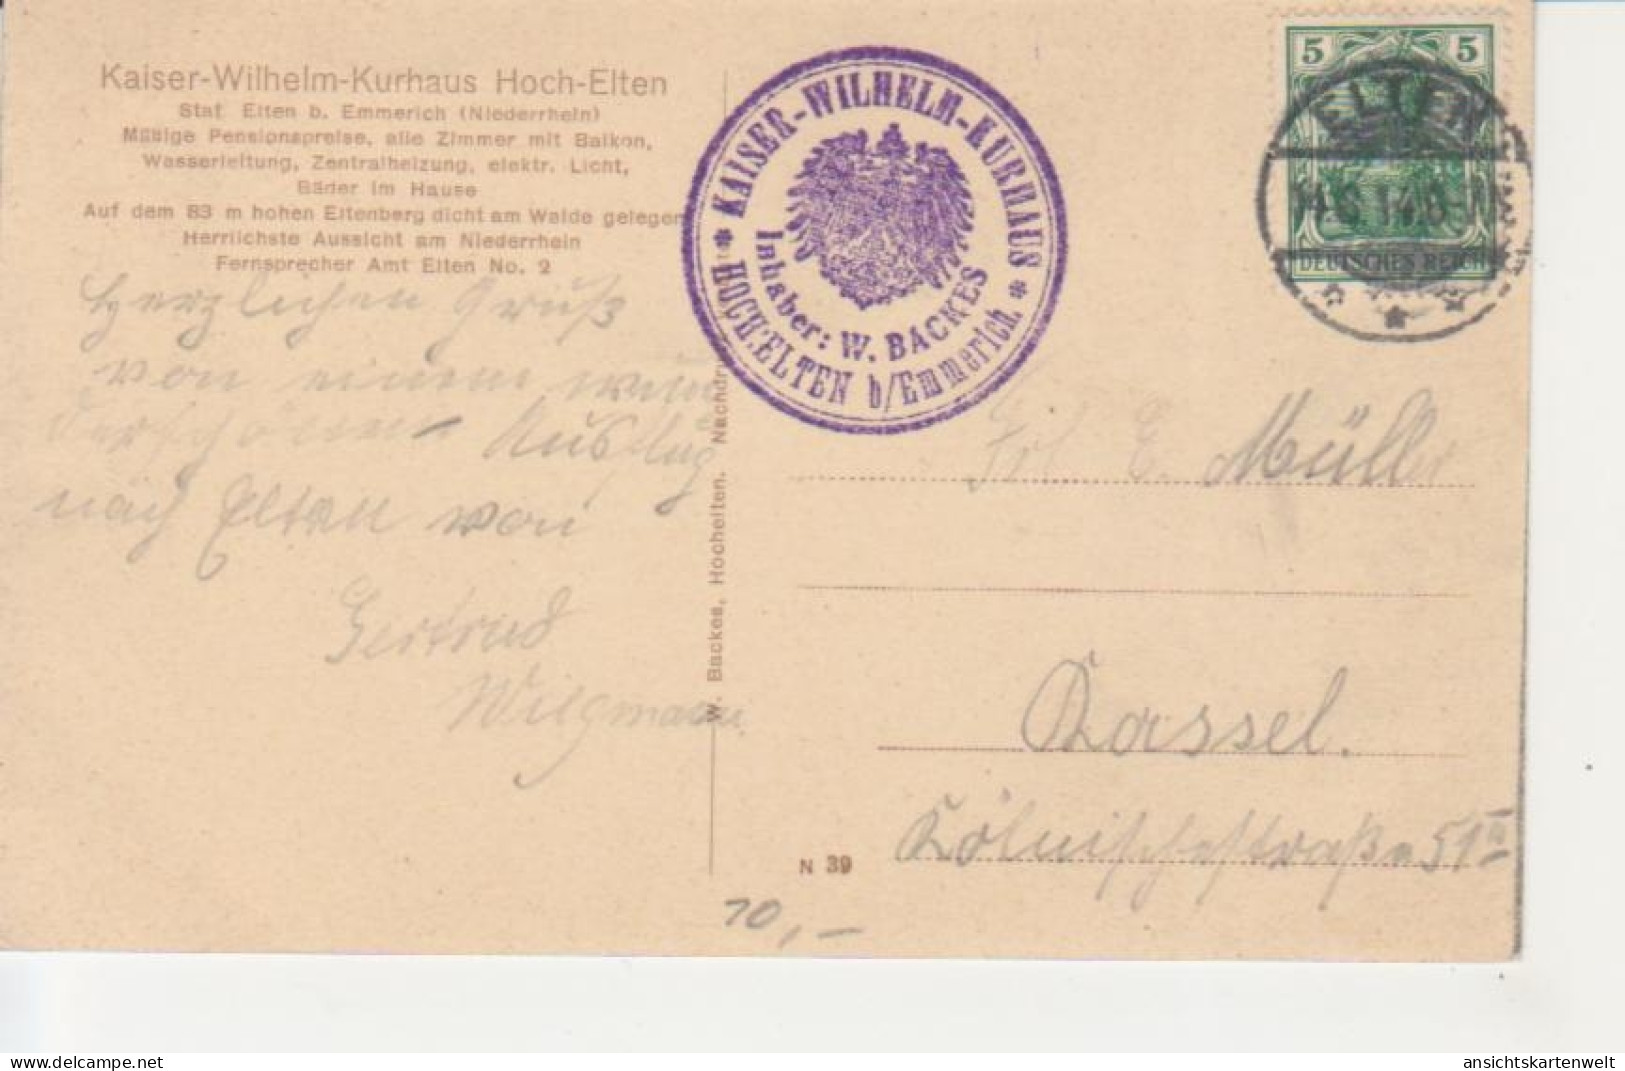 Kaiser-Wilhelm-Kurhaus Hoch-Elten
Stat Elten b. Emmerich (Niederrhein)
Mäßige Pensionspreise, alle Zimmer mit Balkon,
Wasserleitung, Zentralheizung, elektr. Licht,
Bäder im Hause
Auf dem 83 m hohen Eltenberg dicht am Walde gelegen
Herrlichste Aussicht am Niederrhein
Fernsprecher Amt Elten No. 2
Herzlichen Gruß
von einem wun
derschönen Ausflug
nach Elten von
Gertrud
Wilgmann
W. Backes, Hochelten. Nachdru
* KAISER-WILHELM-KURHAUS *
Inhaber: W. BACKES
HOCH-ELTEN b/Emmerich.
5 5
DEUTSCHES REICH
ELTEN
Frl E. Müller
Kassel.
Kölnischestraße 51 II
N 39
70,—
Delcampe.net
ansichtskartenwelt